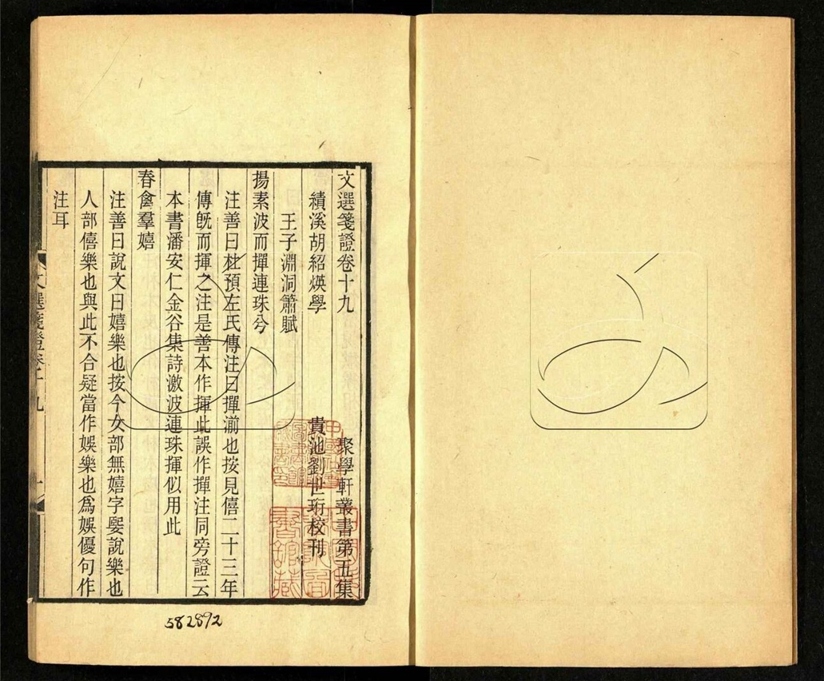 文選箋證卷十九
聚學軒叢書第五集
績溪胡紹煐學
貴池劉世珩校刊
王子淵洞簫賦
揚素波而揮連珠兮
注善曰杜預左氏傳注曰揮湔也按見僖二十三年
傳旣而揮之注是善本作揮此誤作撣注同旁證云
本書潘安仁金谷集詩激波連珠揮似用此
春禽羣嬉
注善曰說文曰嬉樂也按今女部無嬉字媐說樂也
人部僖樂也與此不合疑當作娛樂也爲娛優句作
注耳
文選箋證卷十九
一
582892